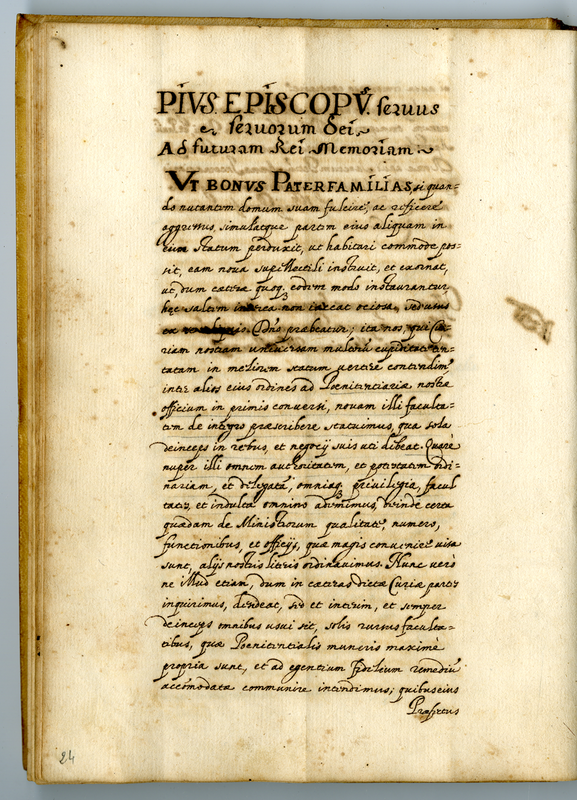 PIVS. EPISCOPVS. seruus
seruorum Dei.
Ad futuram Rei Memoriam.
VT BONVS PATERFAMILIAS, si quan=
do nutantem domum suam fulcire, ac reficere
aggressus, simulacque partem eius aliquam in
eum statum perduxit, ut habitari commode pos=
sit, eam noua supellectili instruit, et exornat,
ut, dum cæteræ quoq. eodem modo instaurantur
hęc saltem interea non iaceat ociosa, sed usus
ex præbeatur; ita nos, qui Cu=
riam nostram uniuersam
tatam in meliorem statum uertere contendim
inter alios eius ordines ad Pœnitentiariæ nostræ
officium in primis conuersi, nouam illi faculta=
tem de integro præscribere statuimus, qua sola
deinceps in rebus, et negocijs suis uti debeat. Quare
nuper illi omnem authoritatem, et potestatem ordi=
nariam, et delegatã, omniaq. priuilegia, facul
tates, et indulta omnino ademimus, deinde certa
quædam de Ministrorum qualitate, numero,
functionibus, et officijs, quæ magis conuenire uisa
sunt, alijs nostris literis ordinauimus. Nunc uerò
ne illud etiam, dum in cæteras dictæ Curiæ partes
inquirimus, desideat, sed et interim, et semper
deinceps omnibus usui sit, solis rursus faculta=
tibus, quæ Pœnitentialis muneris maximè
propria sunt, et ad egentium fidelium remediũ
accõmodatæ communire intendimus; quibus eius
Præfectus
24